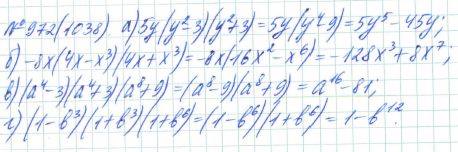 №972(1038) а) 5y(y²-3)(y²+3)=5y(y⁴9)=5y⁵-45y;
б) -8x(4x-x³)(4x+x³)=-8x(16x²-x⁶)=-128x³+8x⁷;
в)(a⁴-3)(a⁴+3)(a⁸+9)=(a⁸-9)(a⁸+9)=a¹⁶-81;
г)(1-b³)(1+b³)(1+b⁶)=(1-b⁶)(1+b⁶)=1-b¹².